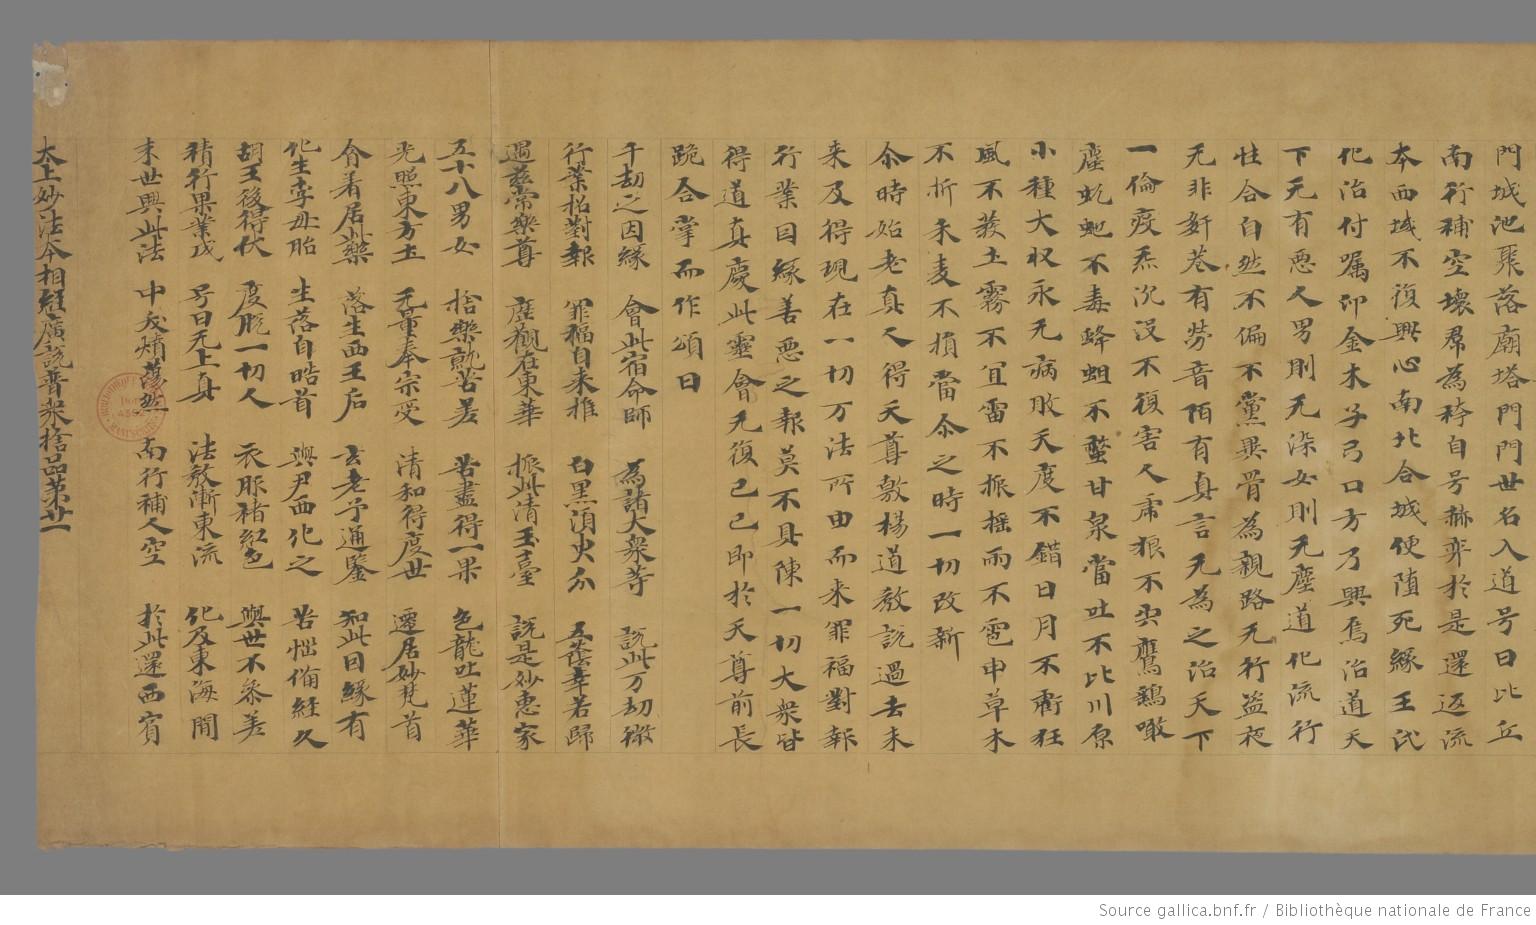 門城池聚落廟塔門門世名入道号曰比丘
南行補空壞帬為袴自号赫弈於是還返流
夲西域不復興心南北合城使随死緣王代
化治付嘱卯金木子弓口方乃興焉治道天
下无有悪人男則无染女則无塵道化流行
性合自然不偏不黨異骨為親路无行盗夜
无非姧巷有勞音陌有真言无為之治天下
一倫疫炁沉没不復害人乕狼不害鷹鷄噉
塵虵虺不毒蜂蛆不螫甘泉當吐不比川原
小種大収永无病敗天度不錯日月不衝狂
風不發土霧不冝雷不振摇雨不雹申草木
不折禾麦不損當尒之時一切改新
尒時始老真人得天尊敷楊道教説過去未
来及得現在一切万法所由而来罪福對報
行業因緣善悪之報莫不具陳一切大衆皆
得道真慶此靈會无復已已即於天尊前長
跪合掌而作頌曰
千劫之因緣 會此宿命師 為諸大衆等 説此万劫徴
行業招對報 罪福自来推 白黒須臾分 五蔭幸若歸
遇慈常樂尊 歴觀在東華 振此清玉臺 説是妙恵家
五十八男女 捨樂就苦差 苦盡得一果 色龍吐蓮華
光照東方土 无量奉宗受 清和得度世 遷居妙梵首
會看居此藥 落生西王后 玄老予通鑒 知此因緣有
化生李母胎 生落自晧首 與尹西化之 苦惱備經久
胡王後得伏 度脱一切人 衣服褚紅色 與世不叅差
積行果業成 号曰无上真 法教漸東流 化及東海間
末世興此法 中或熕蕩然 南行補人空 於此還西賓
太上妙法夲相經廣説普衆捨品第廿一
Source gallica.bnf.fr / Bibliothèque nationale de France